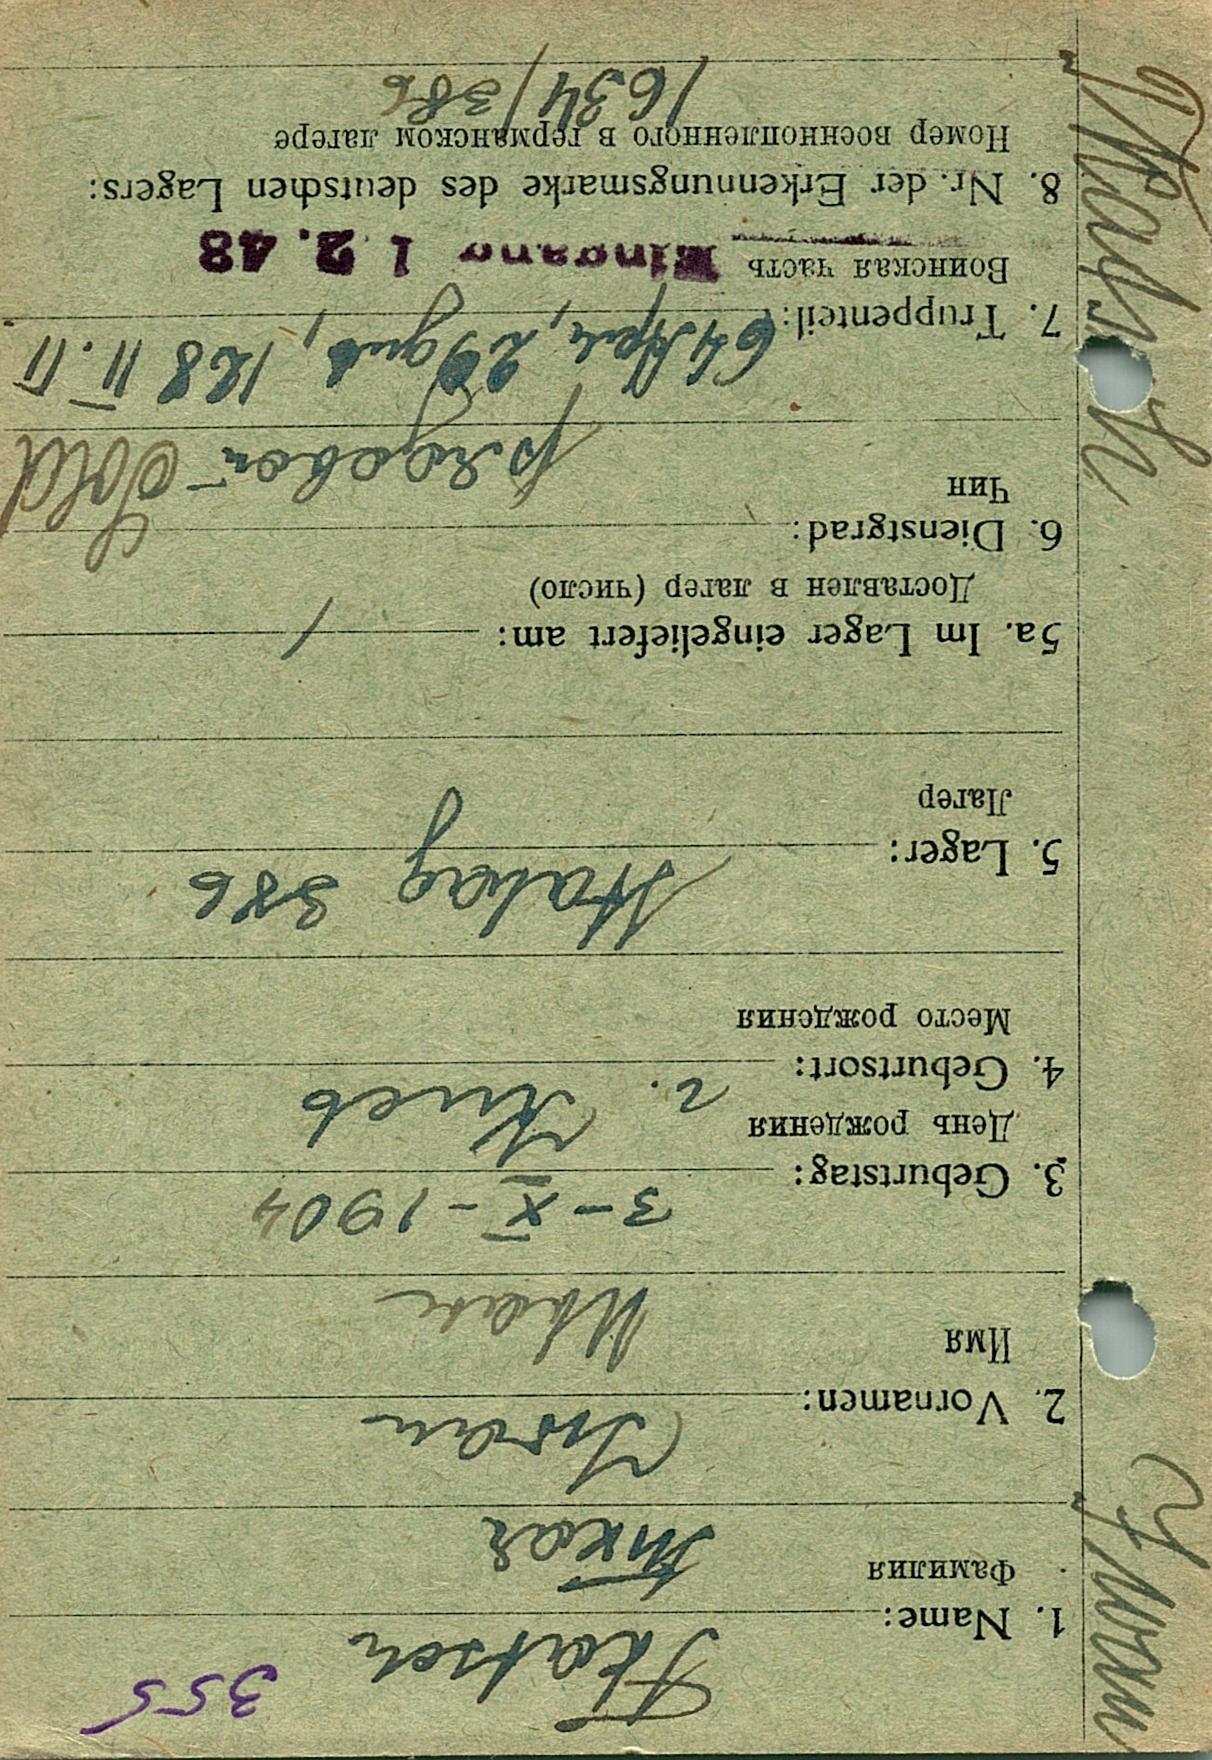 355
1. Name: Tkatsch
Фамилия Ткач
2. Vornamen: Iwan
Имя Иван
3. Geburtstag: 3-X-1904
День рождения
4. Geburtsort: г. Киев
Место рождения
5. Lager: Stalag 386
Лагерь
5a. Im Lager eingeliefert am: /
Доставлен в лагерь (число)
6. Dienstgrad: рядовой - Sold
Чин
7. Truppenteil: 64 Арм, 29 див, 128 П.П
Воинская часть Eingang 1 2. 43
8. Nr. der Erkennungsmarke des deutschen Lagers:
Номер военнопленного в германском лагере
1634/386
Iwan